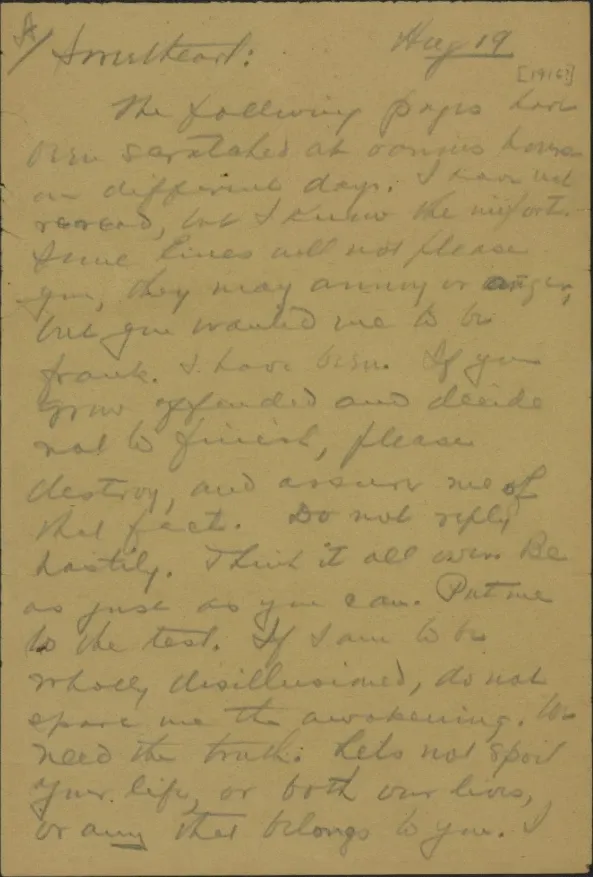 A/ Sweetheart: Aug 19
[1916?]
The following pages have
been scratched at various hours
on different days. I have not
reread, but I know the
Some lines will not please
you, they may annoy or anger,
but you wanted me to be
frank. I have been. If you
grow offended and decide
not to finish, please
destroy, and assure me of
that fact. Do not reply
hastily. Think it all over. Be
as just as you can. Put me
to the test. If I am to be
wholly disillusioned, do not
spare me the awakening. We
need the truth. Lets not spoil
your life, or both our lives,
or any that belongs to you. I